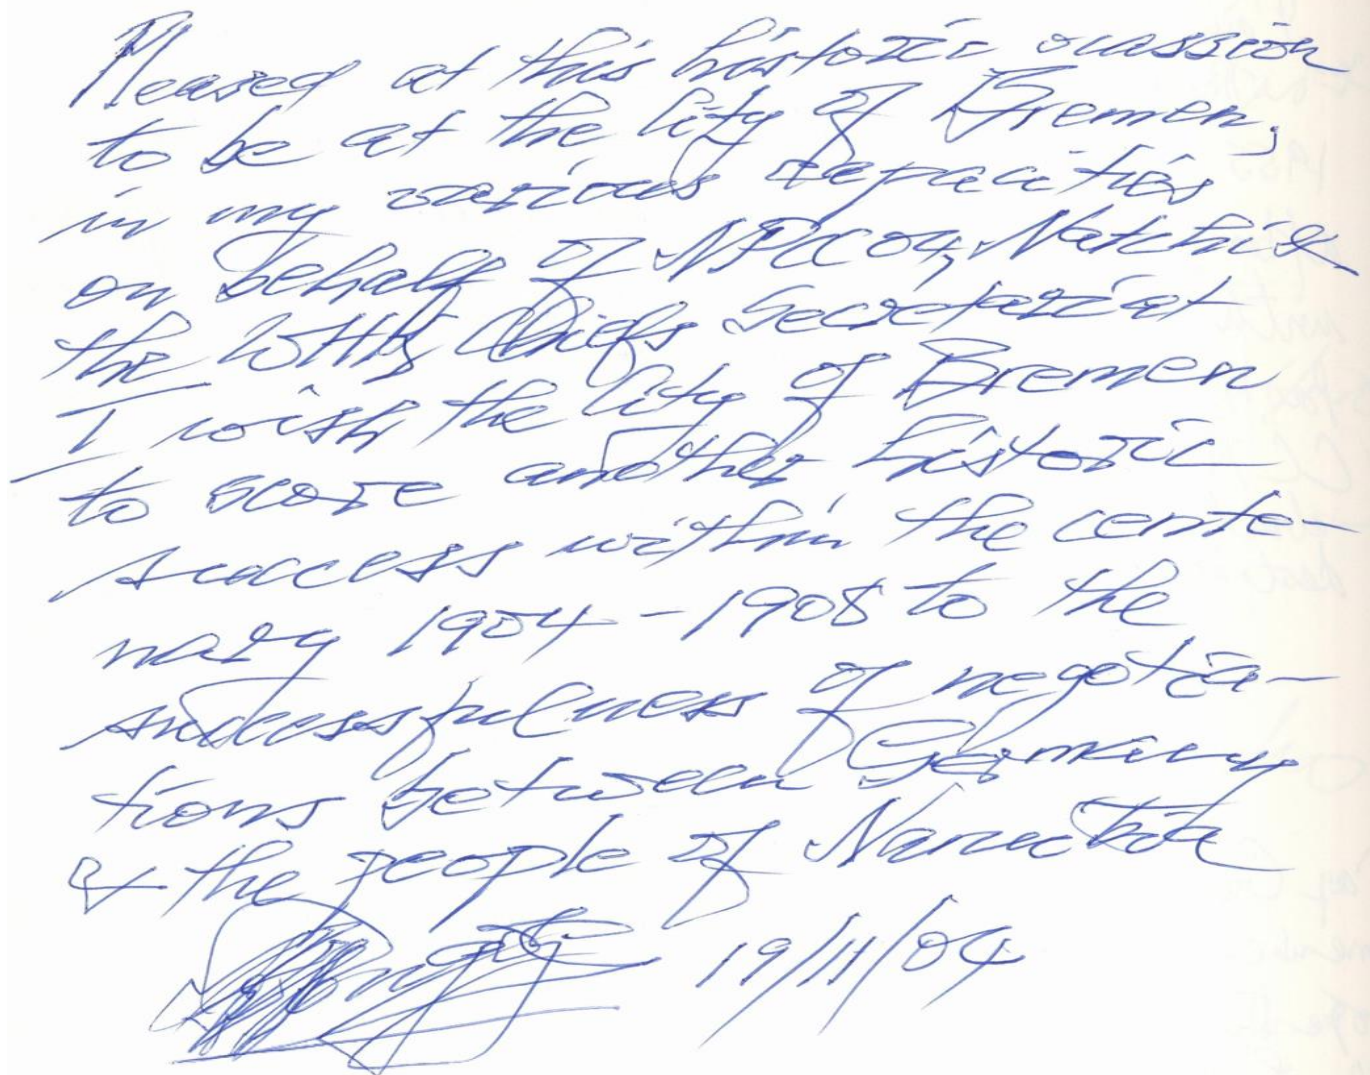 Pleased at this historic ocassion
to be at the City of Bremen,
in my various capacities
on behalf of NPCC04, Natchis &
the Chiefs Secretariat
I wish the City of Bremen
to score another historic
success within the cente-
nary 1904-1908 to the
successfulness of negotia-
tions between Germany
& the people of Namibia
19/11/04